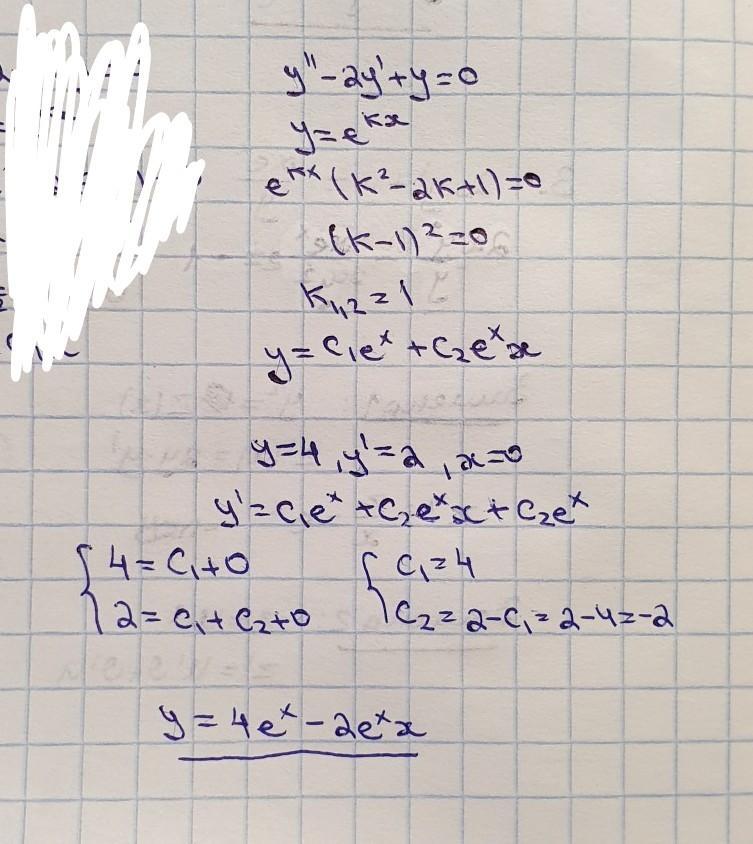 y''-2y'+y=0
y=e^{kx}
e^{kx}(k²-2k+1)=0
(k-1)²=0
k₁,₂=1
y=C₁eˣ+C₂eˣx
y=4, y'=2, x=0
y'=C₁eˣ+C₂eˣx+C₂eˣ
{ 4=C₁+0 { C₁=4
2=C₁+C₂+0 C₂=2-C₁=2-4=-2
y=4eˣ-2eˣx